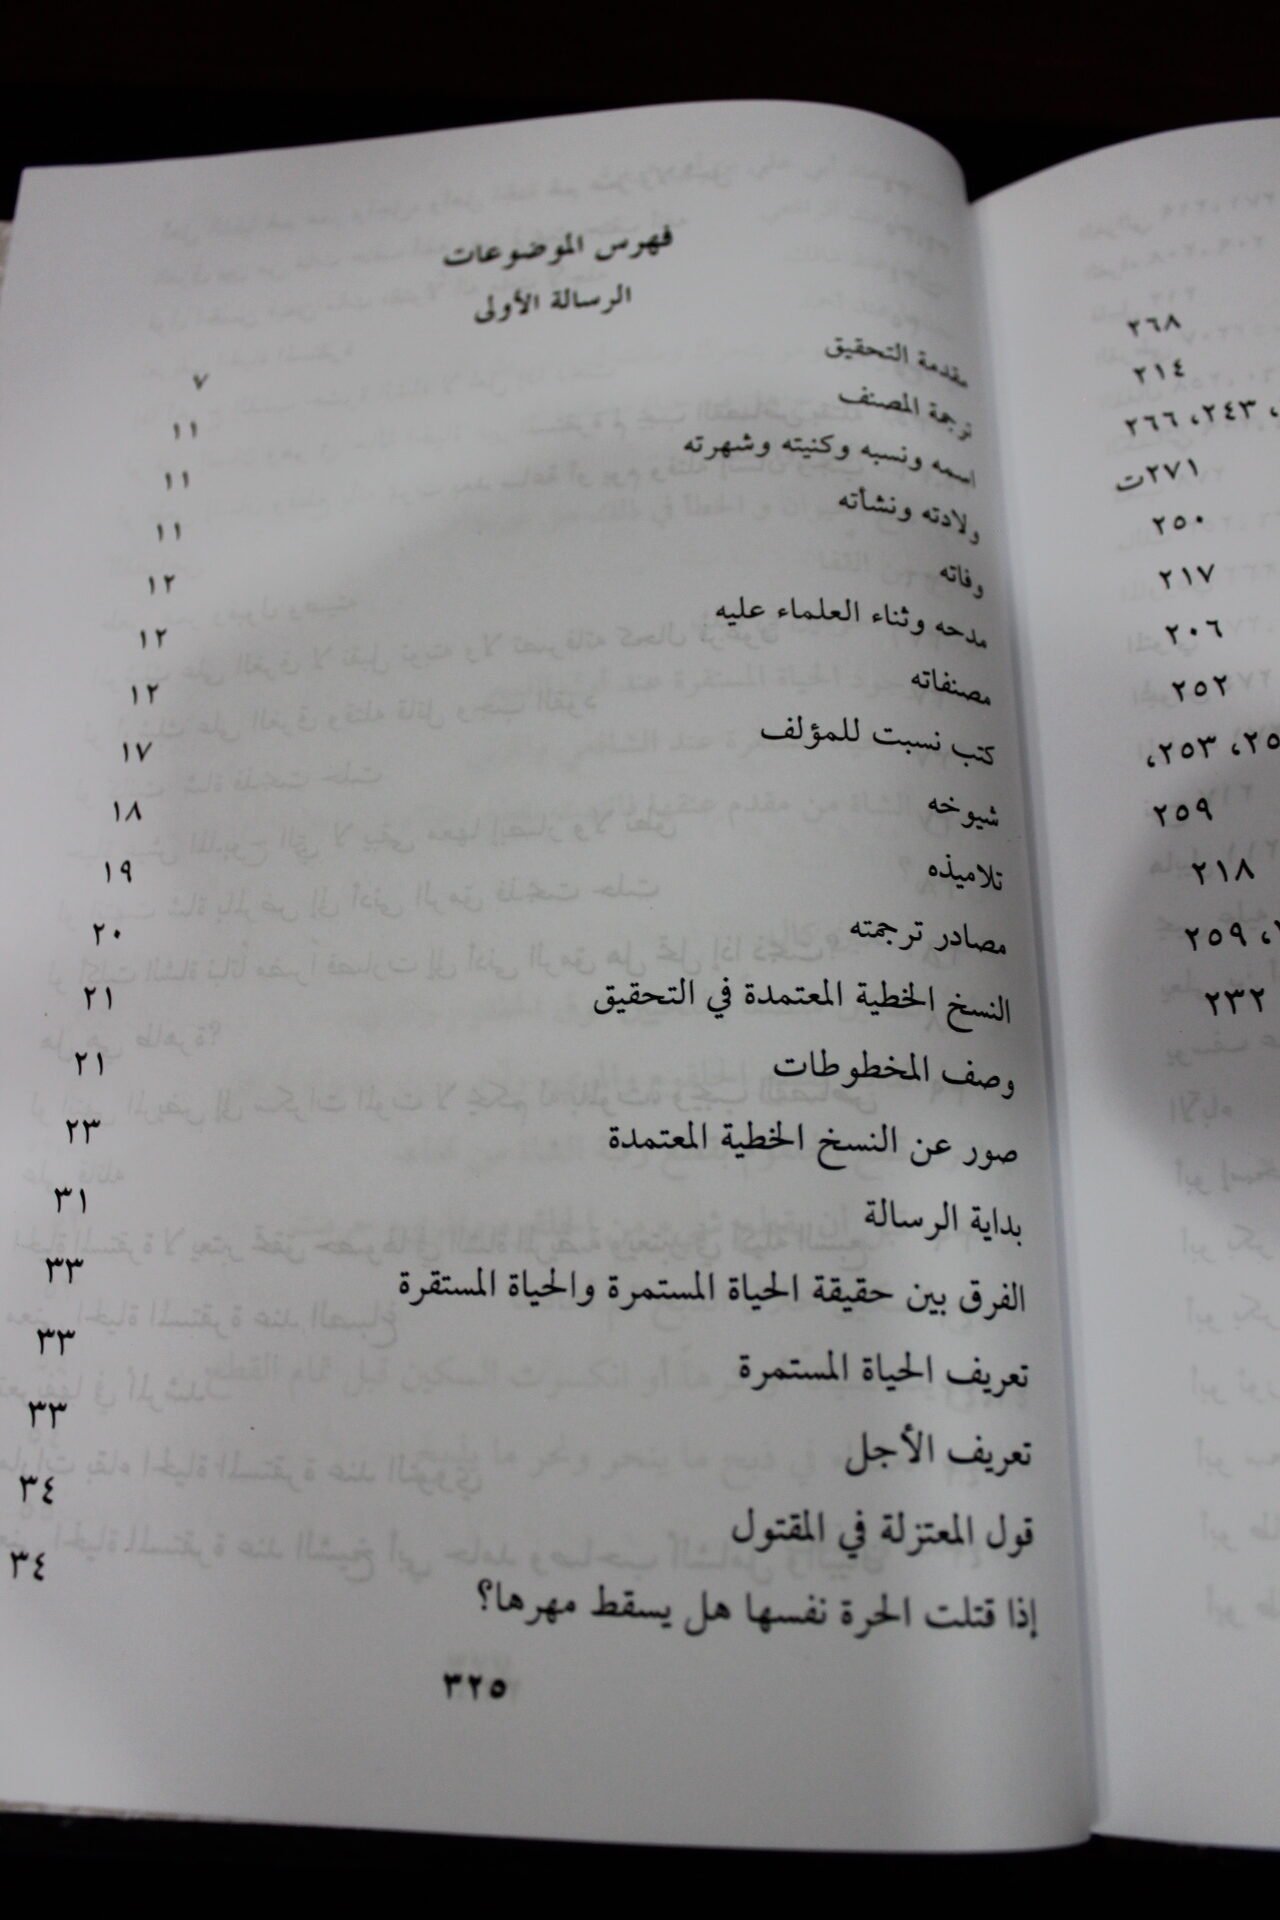 فهرس الموضوعات
الرسالة الأولى
مقدمة التحقيق ٧
ترجمة المصنف ١١
اسمه ونسبه وكنيته وشهرته ١١
ولادته ونشأته ١١
وفاته ١٢
مدحه وثناء العلماء عليه ١٢
مصنفاته ١٢
كتب نسبت للمؤلف ١٧
شيوخه ١٨
تلاميذه ١٩
مصادر ترجمته ٢٠
النسخ الخطية المعتمدة في التحقيق ٢١
وصف المخطوطات ٢١
صور عن النسخ الخطية المعتمدة ٢٣
بداية الرسالة ٣١
الفرق بين حقيقة الحياة المستمرة والحياة المستقرة ٣٣
تعريف الحياة المستمرة ٣٣
تعريف الأجل ٣٣
قول المعتزلة في المقتول ٣٤
إذا قتلت الحرة نفسها هل يسقط مهرها؟ ٣٤
٣٢٥
٢٦٨
٢١٤
٢٤٣، ٢٦٦
٢٧١ت
٢٥٠
٢١٧
٢٠٦
٢٥٢
٢٥٣،
٢٥٩
٢١٨
٢٥٩
٢٣٢